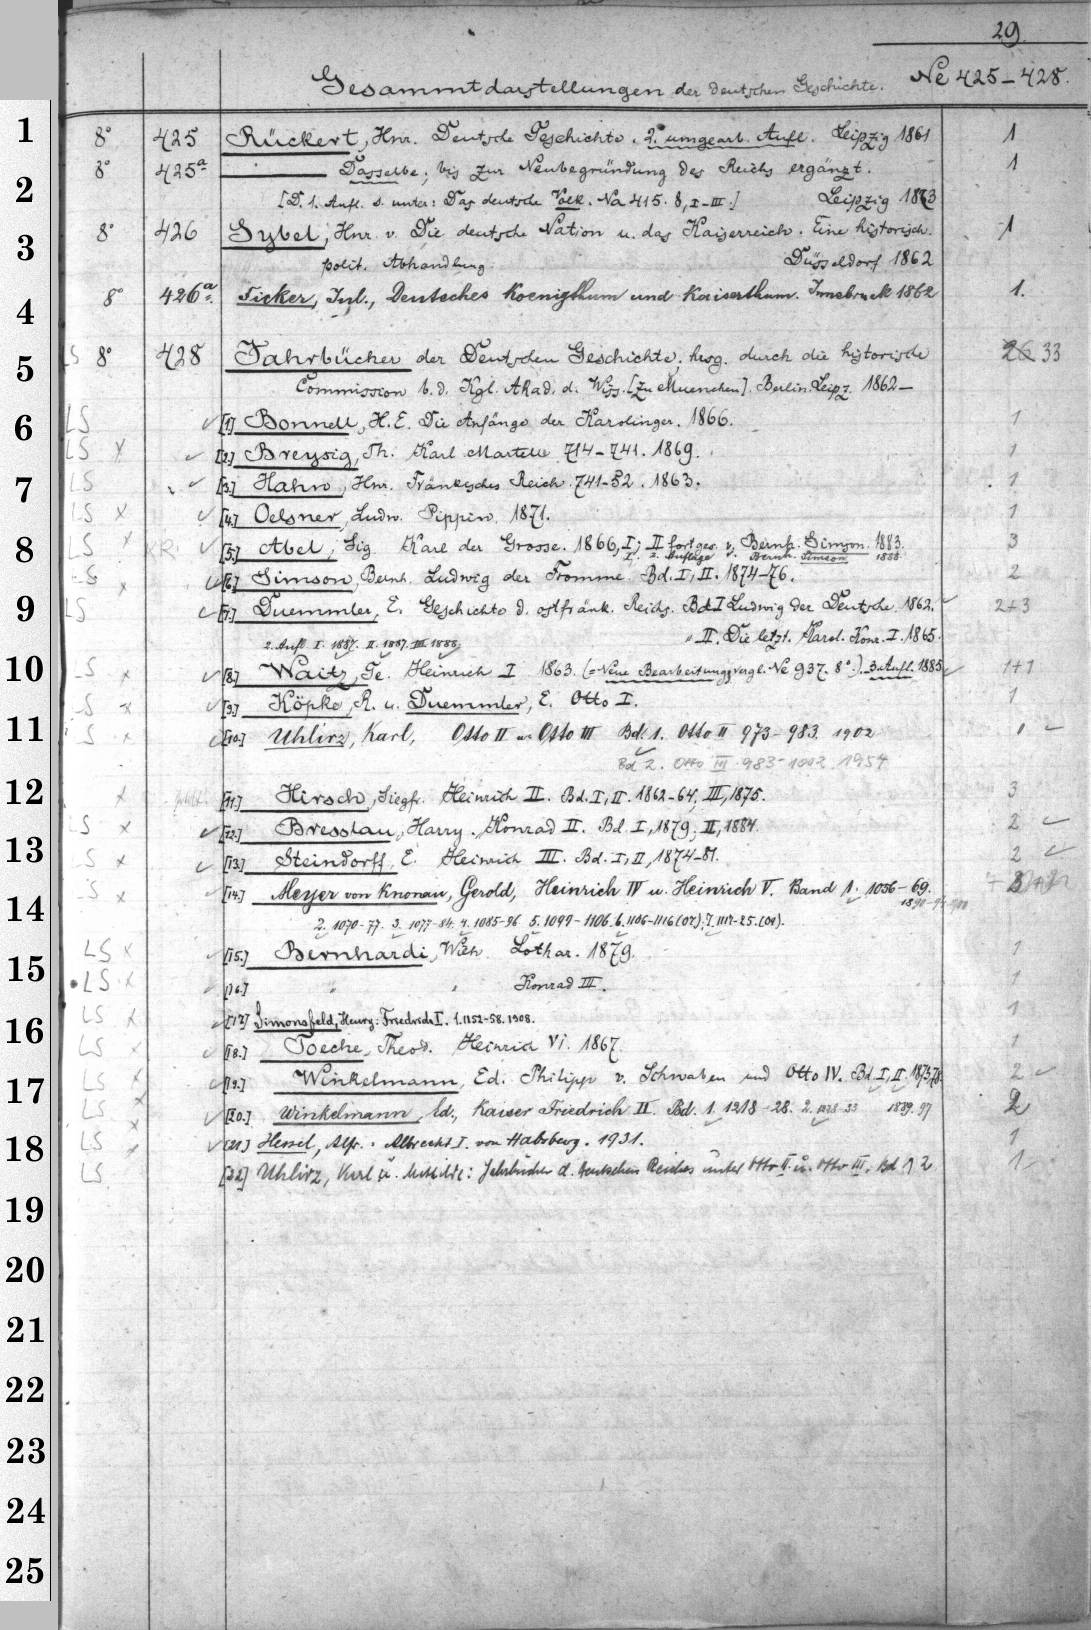 29.
Gesammtdarstellungen der Deutschen Geschichte. Ne 425-428.
1 8° 425 Rückert, Hnr. Deutsche Geschichte. 2. umgearb. Aufl. Leipzig 1861 1
8° 425a Dasselbe; bis zur Neubegründung des Reichs ergänzt. 1
2 [D. 1. Aufl. s. unter: Das deutsche Volk. Na 415. 8, I-III.] Leipzig 1873
3 8° 426 Sybel, Hnr. v. Die deutsche Nation u. das Kaiserreich. Eine historisch. 1
polit. Abhandlung. Düsseldorf 1862
4 8° 426a. Ficker, Jul., Deutsches Koenigthum und Kaiserthum. Innsbruck 1862 1.
5 LS 8° 428 Jahrbücher der Deutschen Geschichte; hrsg. durch die historische 26 33
Commission b. d. Kgl. Akad. d. Wiss. [zu Muenchen]. Berlin. Leipz. 1862-
6 LS [1] Bonnell, H. E. Die Anfänge der Karolinger. 1866. 1
LS x [2.] Breysig, Th. Karl Martell 714-741. 1869. 1
7 LS [3.] Hahn, Hnr. Fränkisches Reich. 741-52. 1863. 1
LS x [4.] Oelsner, Ludw. Pippin. 1871. 1
8 LS x [5.] Abel, Sig. Karl der Grosse. 1866, I; II fortges. v. Bernh. Simson. 1883. 3
I. 2. Auflage v. Bernh. Simson 1888.
LS x [6.] Simson, Bernh. Ludwig der Fromme. Bd. I, II. 1874-76. 2
9 LS [7.] Duemmler, E. Geschichte d. ostfränk. Reichs. Bd I Ludwig der Deutsche. 1862. 2+3
2. Aufl. I. 1887. II. 1887. III 1888. " II. Die letzt. Karol. Konr. I. 1865.
10 LS x [8.] Waitz, Ge. Heinrich I 1863. (= Neue Bearbeitung vergl. Ne 937. 8°.). 3. Aufl. 1885 1+1
S x [9.] Köpke, R. u. Duemmler, E. Otto I. 1
11 S x [10.] Uhlirz, Karl, Otto II u. Otto III Bd. 1. Otto II 973-983. 1902 1
Bd 2. Otto III 983-1002. 1954
12 x [11.] Hirsch, Siegfr. Heinrich II. Bd. I, II. 1862-64, III, 1875. 3
LS x [12.] Bresslau, Harry. Konrad II. Bd. I, 1879; II, 1884. 2
13 S x [13.] Steindorff, E. Heinrich III. Bd. I, II, 1874-81. 2
S x [14.] Meyer von Knonau, Gerold, Heinrich IV u. Heinrich V. Band 1. 1056-69.
14 2. 1070-77. 3. 1077-84. 4. 1085-96 5. 1097-1106. 6. 1106-1116 (07); 7. 1117-25. (09).
LS x [15.] Bernhardi, Wilh. Lothar. 1879. 1
15 LS x [16.] " " Konrad III. 1
16 LS x [17] Simonsfeld, Henry: Friedrich I. 1. 1152-58. 1908. 1
LS x [18.] Toeche, Theod. Heinrich VI. 1867 1
17 LS x [19.] Winkelmann, Ed. Philipp v. Schwaben und Otto IV. Bd. I, II. 1873, 78. 2
LS x [20.] Winkelmann, Ed., Kaiser Friedrich II. Bd. 1. 1218-28. 2. 1228-33 1889. 97 2
18 LS x [21] Hessel, Alfr.: Albrecht I. von Habsburg. 1931. 1
LS [22] Uhlirz, Karl u. Mathilde: Jahrbücher d. Deutschen Reiches unter Otto II. u. Otto III. Bd 1, 2 1
19
20
21
22
23
24
25